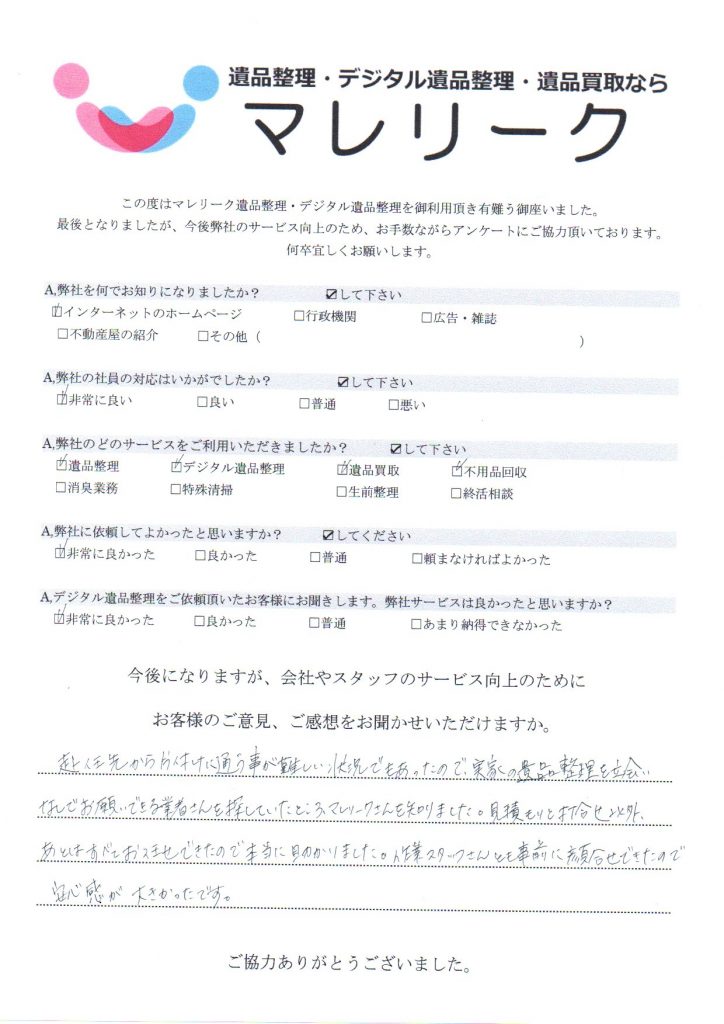 遺品整理・デジタル遺品整理・遺品買取なら
マレリーク
この度はマレリーク遺品整理・デジタル遺品整理を御利用頂き有難う御座いました。
最後となりましたが、今後弊社のサービス向上のため、お手数ながらアンケートにご協力頂いております。
何卒宜しくお願いします。
A,弊社を何でお知りになりましたか？ ☑して下さい
☑インターネットのホームページ □行政機関 □広告・雑誌
□不動産屋の紹介 □その他（ ）
A,弊社の社員の対応はいかがでしたか？ ☑して下さい
☑非常に良い □良い □普通 □悪い
A,弊社のどのサービスをご利用いただきましたか？ ☑して下さい
☑遺品整理 ☑デジタル遺品整理 ☑遺品買取 ☑不用品回収
□消臭業務 □特殊清掃 □生前整理 □終活相談
A,弊社に依頼してよかったと思いますか？ ☑してください
☑非常に良かった □良かった □普通 □頼まなければよかった
A,デジタル遺品整理をご依頼頂いたお客様にお聞きします。弊社サービスは良かったと思いますか？
☑非常に良かった □良かった □普通 □あまり納得できなかった
今後になりますが、会社やスタッフのサービス向上のために
お客様のご意見、ご感想をお聞かせいただけますか。
赴任先から片付けに通う事が難しい状況でもあったので、実家の遺品整理を立会い
なしでお願いできる業者さんを探していたところ、マレリークさんを知りました。見積もりと打合せ以外、
あとはすべてお任せできたので本当に助かりました。作業スタッフさんとも事前に顔合せできたので
安心感が大きかったです。
ご協力ありがとうございました。